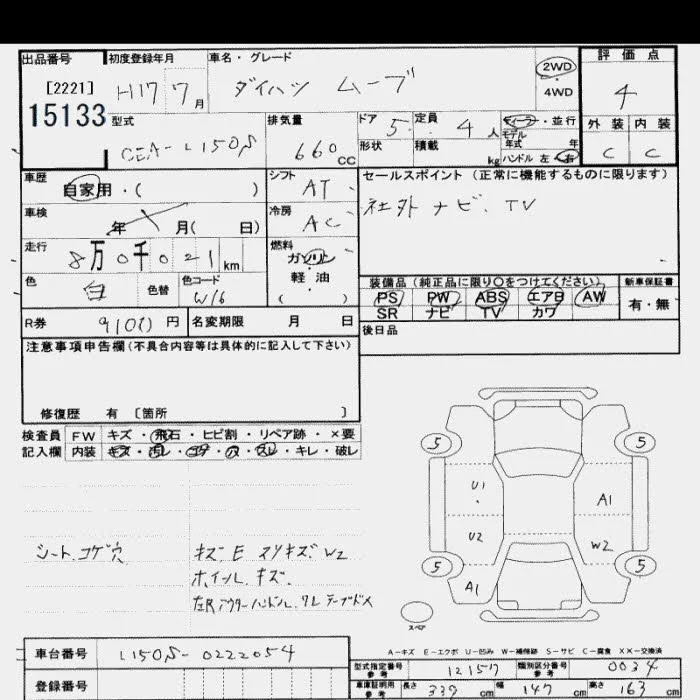 出品番号 初度登録年月 車名・グレード 評価点
[2221] H17 7月 ダイハツ ムーブ 2WD 4
15133 4WD
型式 排気量 ドア 5 定員 4人 ディーラー・並行 外装 内装
CBA-L150S 660cc モデル年式 年
形状 積載 kg ハンドル 左・右 C C
車歴 自家用・( ) シフト AT セールスポイント(正常に機能するものに限ります)
車検 年 月( 日) 冷房 AC 社外ナビ、TV
走行 8万0千021km 燃料 ガソリン・軽油 ( )
色 白 色替 色コード W16 装備品(純正品に限り○をつけてください) 新車保証書
PS PW ABS エアB AW 有・無
SR ナビ TV カワ
R券 円 名変期限 月 日 後日品
注意事項申告欄(不具合内容等は具体的に記入して下さい)
修復歴 有 [箇所 ]
検査員 FW キズ・飛石・ヒビ割・リペア跡・×要
記入欄 内装 キズ・汚レ・コゲ・穴・スレ・キレ・破レ
5 5
U1 A1
U2 W2
5 5
A1
スペア
シート.コゲ穴 キズE スリキズ.W2
ホイル.キズ.
A-キズ E-エクボ U-凹み W-補修跡 S-サビ C-腐食 XX-交換済
車台番号 L150S-0222054
登録番号
型式指定番号 参考 12157 類別区分番号 参考 0034
車庫証明用 参考 長さ 339cm 幅 147cm 高さ 163cm